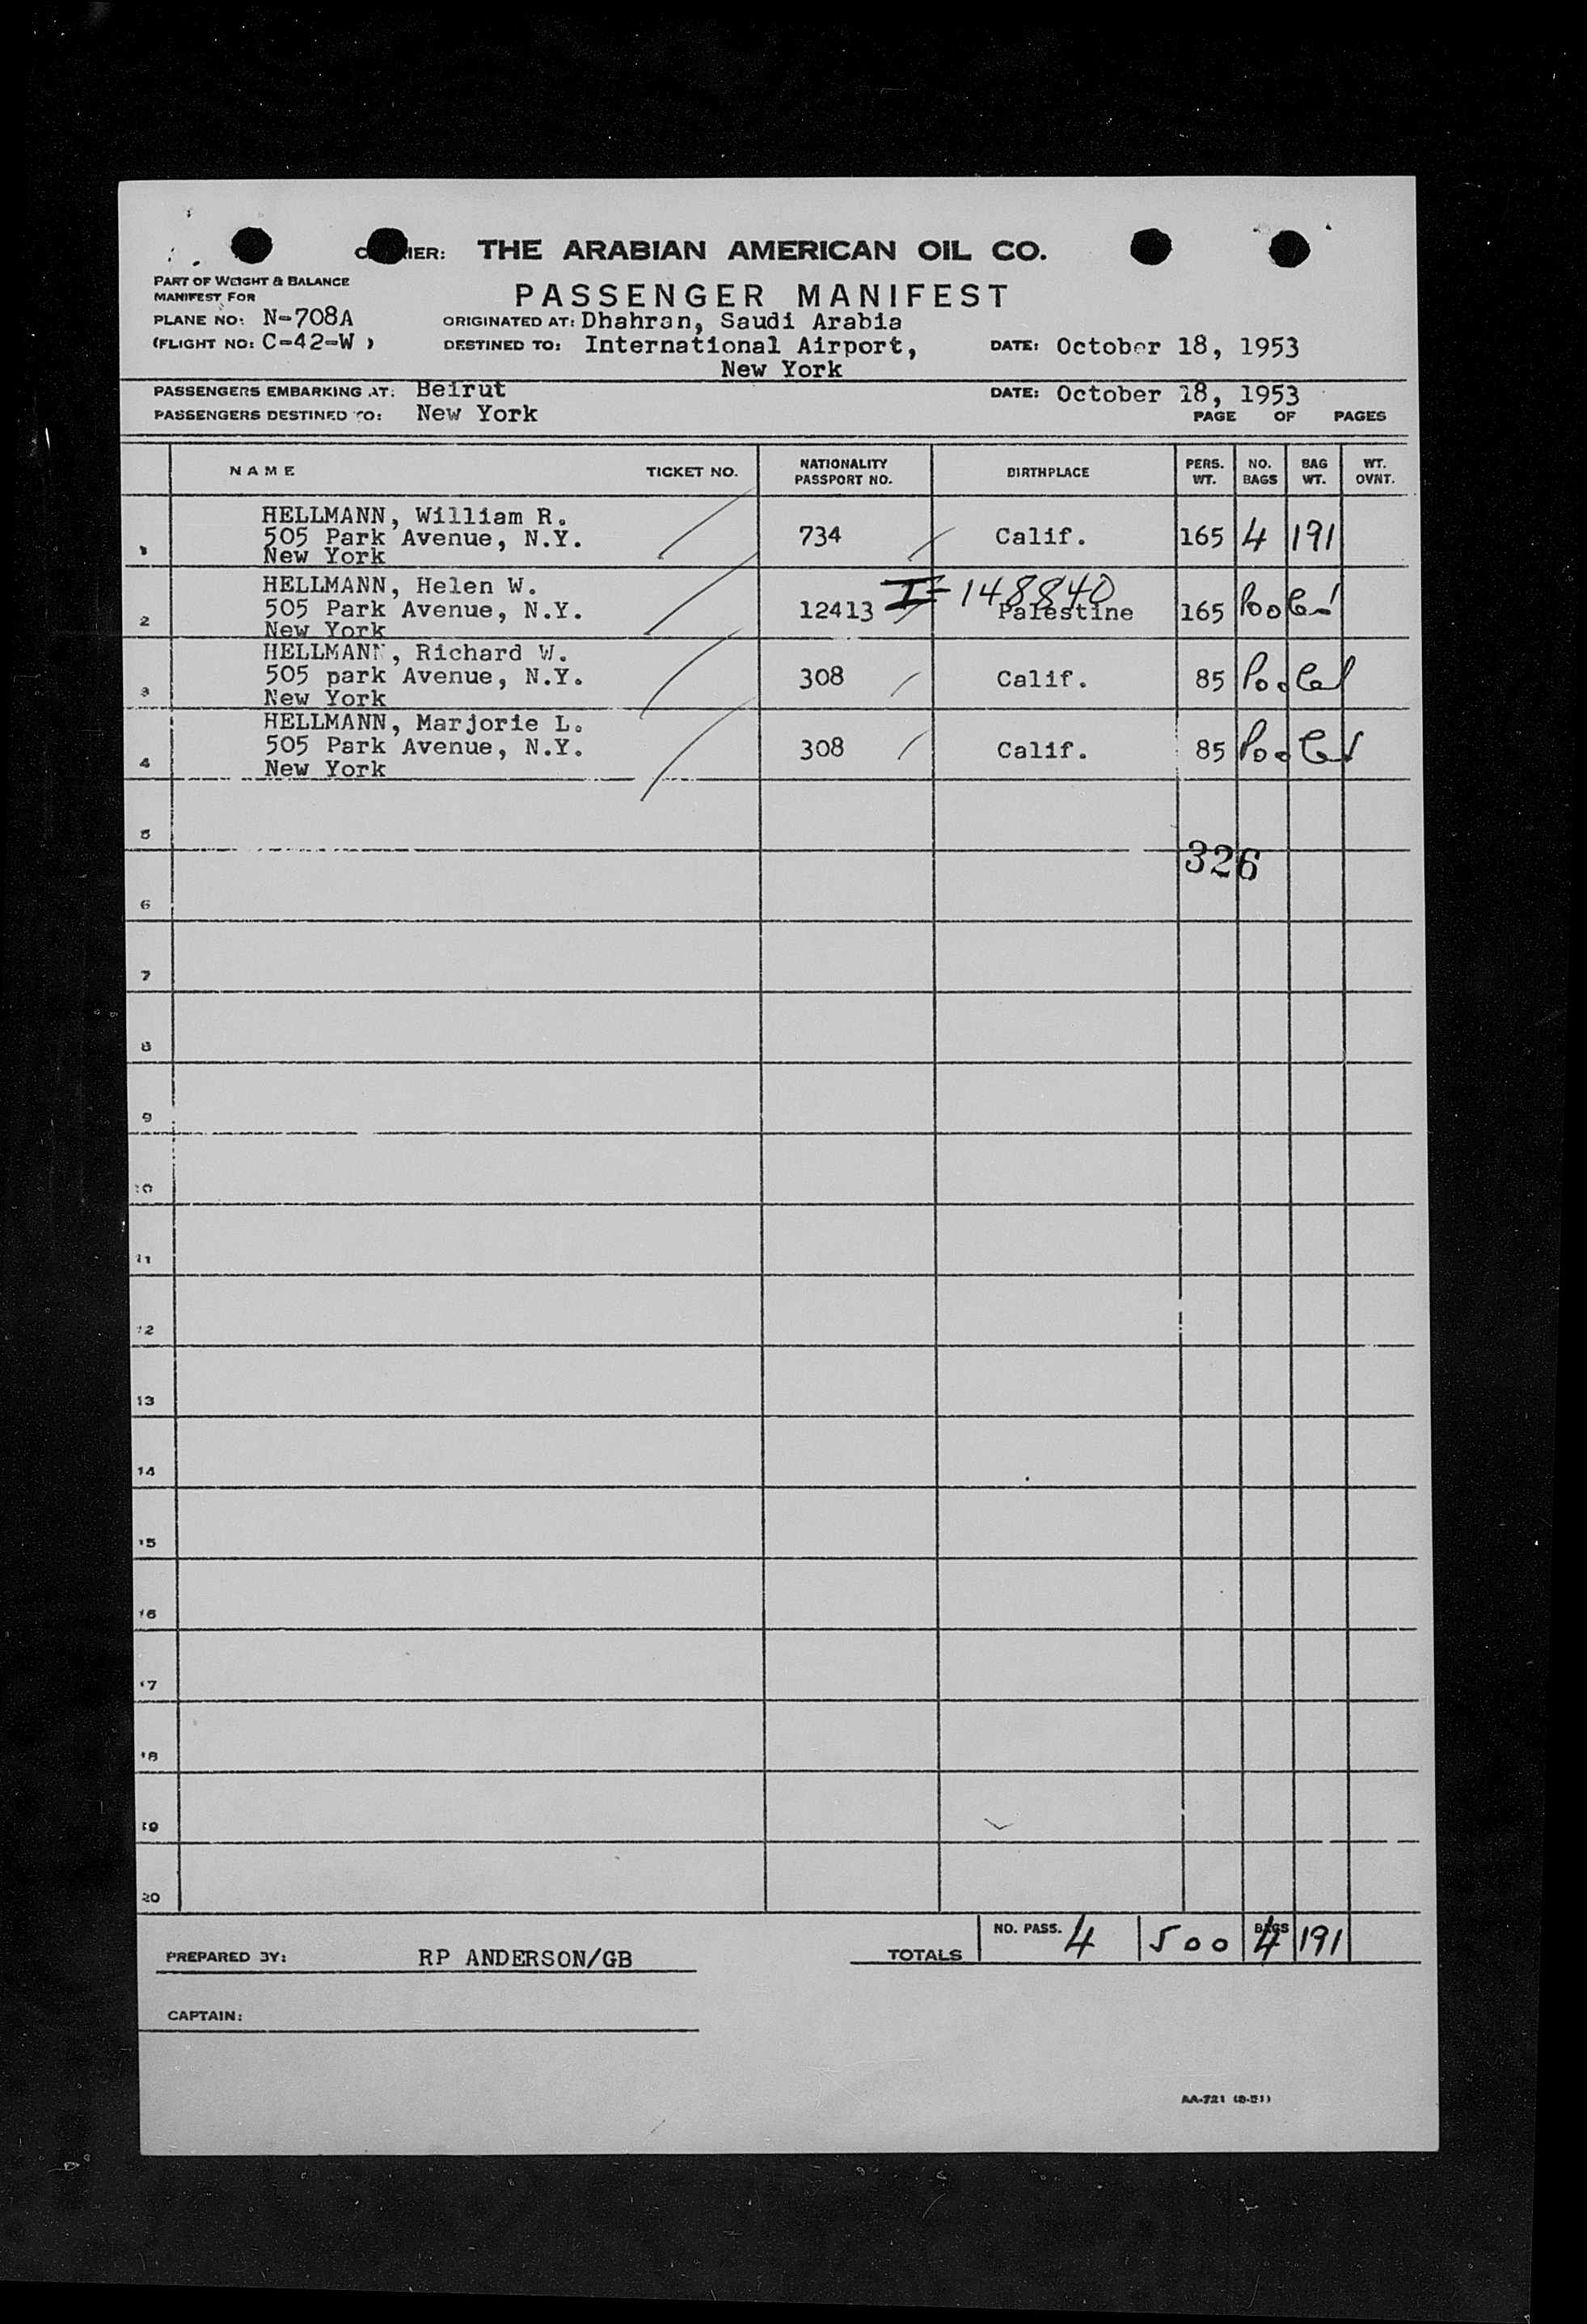 CARRIER: THE ARABIAN AMERICAN OIL CO.
PART OF WEIGHT & BALANCE
MANIFEST FOR
PASSENGER MANIFEST
PLANE NO: N-708A
ORIGINATED AT: Dhahran, Saudi Arabia
(FLIGHT NO: C-42-W )
DESTINED TO: International Airport,
New York
DATE: October 18, 1953
PASSENGERS EMBARKING AT: Beirut
DATE: October 18, 1953
PASSENGERS DESTINED TO: New York
PAGE OF PAGES
NAME TICKET NO. NATIONALITY PASSPORT NO. BIRTHPLACE PERS. WT. NO. BAGS BAG WT. WT. OVNT.
HELLMANN, William R.
1 505 Park Avenue, N.Y. 734 Calif. 165 4 191
New York
HELLMANN, Helen W. I-148840
2 505 Park Avenue, N.Y. 12413 Palestine 165 Pooled
New York
HELLMANN, Richard W.
3 505 park Avenue, N.Y. 308 Calif. 85 Pooled
New York
HELLMANN, Marjorie L.
4 505 Park Avenue, N.Y. 308 Calif. 85 Pooled
New York
5
326
6
7
8
9
10
11
12
13
14
15
16
17
18
19
20
TOTALS NO. PASS. 4 500 BAGS 4 191
PREPARED BY: RP ANDERSON/GB
CAPTAIN:
AA-721 (8-51)